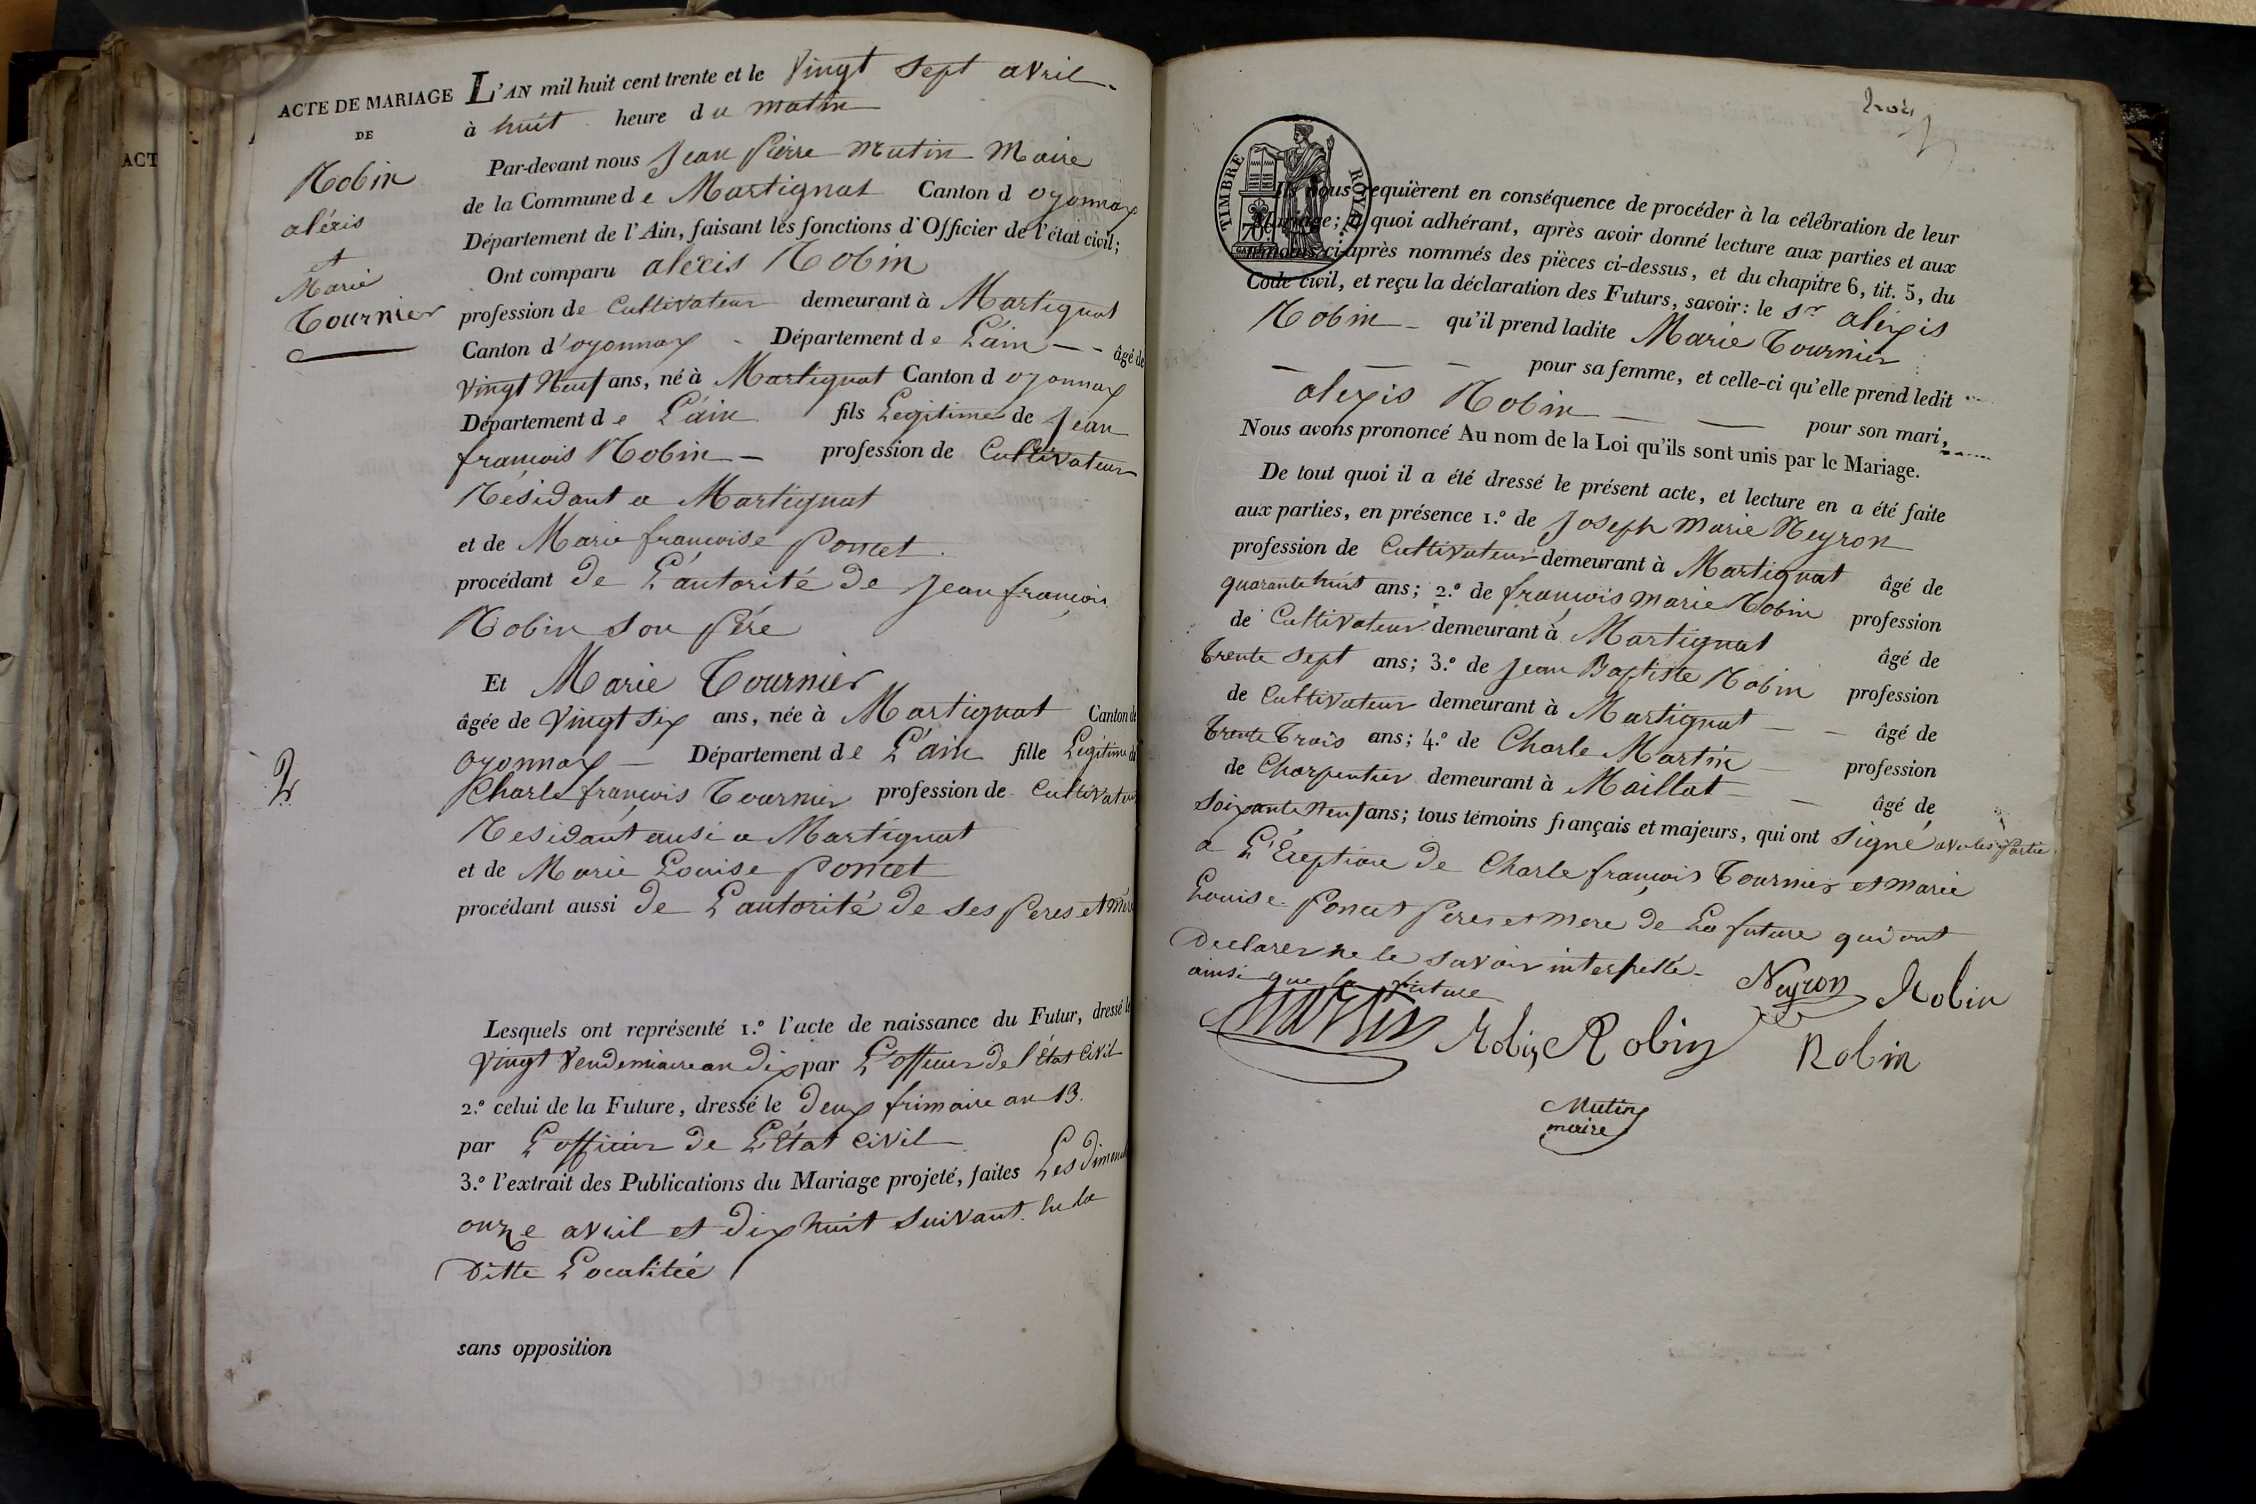 ACT
ACTE DE MARIAGE
DE
Robin
aléxis
et
Marie
Tournier
2
L'AN mil huit cent trente et le Vingt Sept avril
à huit heure du matin
Par-devant nous Jean Pierre Mutin Maire
de la Commune de Martignat Canton d oyonnax
Département de l'Ain, faisant les fonctions d'Officier de l'état civil;
Ont comparu aléxis Robin
profession de Cultivateur demeurant à Martignat
Canton d'oyonnax Département de L'ain âgé de
Vingt Neuf ans, né à Martignat Canton d oyonnax
Département de L'ain fils Legitime de Jean
françois Robin profession de Cultivateur
Résidant a Martignat
et de Marie françoise Poncet
procédant de L'autorité de Jean françois
Robin Son Père
Et Marie Tournier
âgée de Vingt Six ans, née à Martignat Canton de
oyonnax Département de L'ain fille Legitime de
Charle françois Tournier profession de Cultivateur
Residant ausi a Martignat
et de Marie Louise Poncet
procédant aussi de L'autorité de Ses Peres et mère
Lesquels ont représenté 1.º l'acte de naissance du Futur, dressé le
Vingt Vendemiaire an dix par L'officier de l'État Civil
2.º celui de la Future, dressé le deux frimaire an 13.
par L'officier de L'État Civil
3.º l'extrait des Publications du Mariage projeté, faites Les dimanch
onze avril et dix huit Suivant. en la
Ditte Localitée
sans opposition
trois
TIMBRE ROYAL
70
Ils nous requièrent en conséquence de procéder à la célébration de leur
Mariage; à quoi adhérant, après avoir donné lecture aux parties et aux
témoins ci-après nommés des pièces ci-dessus, et du chapitre 6, tit. 5, du
Code civil, et reçu la déclaration des Futurs, savoir: le Sr aléxis
Robin qu'il prend ladite Marie Tournier
pour sa femme, et celle-ci qu'elle prend ledit
alexis Robin pour son mari,
Nous avons prononcé Au nom de la Loi qu'ils sont unis par le Mariage.
De tout quoi il a été dressé le présent acte, et lecture en a été faite
aux parties, en présence 1.º de Joseph Marie Neyron
profession de Cultivateur demeurant à Martignat âgé de
quarante huit ans; 2.º de françois Marie Robin profession
de Cultivateur demeurant à Martignat âgé de
trente Sept ans; 3.º de Jean Baptiste Robin profession
de Cultivateur demeurant à Martignat âgé de
trente Trois ans; 4.º de Charle Martin profession
de Charpentier demeurant à Maillat âgé de
Soixante Neuf ans; tous témoins français et majeurs, qui ont Signé avec les Partie
a L'Exeption de Charle françois Tournier et Marie
Louise Poncet Peres et Mere de La future qui ont
Declarer ne le Savoir interpellé
ainsi que la future
Neyron Robin
Martin Robin Robin
Robin
Mutin
maire